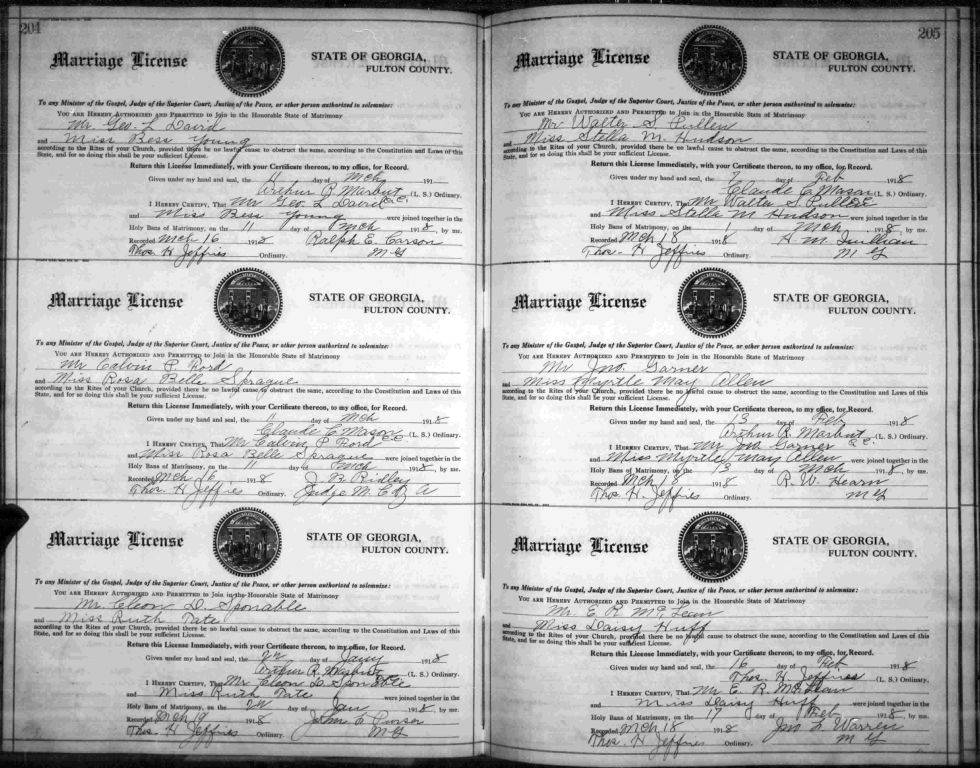 204
Marriage License
STATE OF GEORGIA,
FULTON COUNTY.
To any Minister of the Gospel, Judge of the Superior Court, Justice of the Peace, or other person authorized to solemnize:
YOU ARE HEREBY AUTHORIZED AND PERMITTED to Join in the Honorable State of Matrimony
Mr. Geo. L Daird
and Miss Bess Young
according to the Rites of your Church, provided there be no lawful cause to obstruct the same, according to the Constitution and Laws of this
State, and for so doing this shall be your sufficient License.
Return this License Immediately, with your Certificate thereon, to my office, for Record.
Given under my hand and seal, the 11 day of Mch 191
Arthur R Marbut (L. S.) Ordinary.
I HEREBY CERTIFY, That Mr Geo. L Daird
and Miss Bess Young were joined together in the
Holy Bans of Matrimony, on the 11 day of Mch 1918, by me.
Recorded Mch 16 1918 Ralph E. Carson
Thos H Jeffries Ordinary. M G
Marriage License
STATE OF GEORGIA,
FULTON COUNTY.
To any Minister of the Gospel, Judge of the Superior Court, Justice of the Peace, or other person authorized to solemnize:
YOU ARE HEREBY AUTHORIZED AND PERMITTED to Join in the Honorable State of Matrimony
Mr Calvin P. Ford
and Miss Rosa Belle Sprague
according to the Rites of your Church, provided there be no lawful cause to obstruct the same, according to the Constitution and Laws of this
State, and for so doing this shall be your sufficient License.
Return this License Immediately, with your Certificate thereon, to my office, for Record.
Given under my hand and seal, the 11 day of Mch 1918
Claude C Mason C.C. (L. S.) Ordinary.
I HEREBY CERTIFY, That Mr Calvin P Ford
and Miss Rosa Belle Sprague were joined together in the
Holy Bans of Matrimony, on the 11 day of Mch 1918, by me.
Recorded Mch 16 1918 J B Ridley
Thos. H Jeffries Ordinary. Judge M. C of A
Marriage License
STATE OF GEORGIA,
FULTON COUNTY.
To any Minister of the Gospel, Judge of the Superior Court, Justice of the Peace, or other person authorized to solemnize:
YOU ARE HEREBY AUTHORIZED AND PERMITTED to Join in the Honorable State of Matrimony
Mr. Cleon D. Sponable
and Miss Ruth Tate
according to the Rites of your Church, provided there be no lawful cause to obstruct the same, according to the Constitution and Laws of this
State, and for so doing this shall be your sufficient License.
Return this License Immediately, with your Certificate thereon, to my office, for Record.
Given under my hand and seal, the 22 day of Jany 1918
Arthur R. Marbut (L. S.) Ordinary.
I HEREBY CERTIFY, That Mr Cleon D. Sponable
and Miss Ruth Tate were joined together in the
Holy Bans of Matrimony, on the day of Jan 1918, by me.
Recorded Mch 19 1918 John E Purser
Thos H Jeffries Ordinary. M G
205
Marriage License
STATE OF GEORGIA,
FULTON COUNTY.
To any Minister of the Gospel, Judge of the Superior Court, Justice of the Peace, or other person authorized to solemnize:
YOU ARE HEREBY AUTHORIZED AND PERMITTED to Join in the Honorable State of Matrimony
Mr Walter S. Pullen
and Miss Stella M. Hudson
according to the Rites of your Church, provided there be no lawful cause to obstruct the same, according to the Constitution and Laws of this
State, and for so doing this shall be your sufficient License.
Return this License Immediately, with your Certificate thereon, to my office, for Record.
Given under my hand and seal, the 7 day of Feb 1918
Claude C Mason (L. S.) Ordinary.
I HEREBY CERTIFY, That Mr Walter S. Pullen
and Miss Stella M Hudson were joined together in the
Holy Bans of Matrimony, on the day of Mch 1918, by me.
Recorded Mch 18 1918 H M
Thos. H Jeffries Ordinary. M G
Marriage License
STATE OF GEORGIA,
FULTON COUNTY.
To any Minister of the Gospel, Judge of the Superior Court, Justice of the Peace, or other person authorized to solemnize:
YOU ARE HEREBY AUTHORIZED AND PERMITTED to Join in the Honorable State of Matrimony
Mr. Jno. Garner
and Miss Myrtle May Allen
according to the Rites of your Church, provided there be no lawful cause to obstruct the same, according to the Constitution and Laws of this
State, and for so doing this shall be your sufficient License.
Return this License Immediately, with your Certificate thereon, to my office, for Record.
Given under my hand and seal, the 13 day of Feb 1918
Arthur R. Marbut C.C. (L. S.) Ordinary.
I HEREBY CERTIFY, That Mr Jno Garner
and Miss Myrtle May Allen were joined together in the
Holy Bans of Matrimony, on the 13 day of Mch 1918, by me.
Recorded Mch 18 1918 R. W. Hearn
Thos H. Jeffries Ordinary. M G
Marriage License
STATE OF GEORGIA,
FULTON COUNTY.
To any Minister of the Gospel, Judge of the Superior Court, Justice of the Peace, or other person authorized to solemnize:
YOU ARE HEREBY AUTHORIZED AND PERMITTED to Join in the Honorable State of Matrimony
Mr. E. R McLean
and Miss Daisy Huff
according to the Rites of your Church, provided there be no lawful cause to obstruct the same, according to the Constitution and Laws of this
State, and for so doing this shall be your sufficient License.
Return this License Immediately, with your Certificate thereon, to my office, for Record.
Given under my hand and seal, the 16 day of Feb 1918
Thos. H Jeffries (L. S.) Ordinary.
I HEREBY CERTIFY, That Mr E. R McLean
and Miss Daisy Huff were joined together in the
Holy Bans of Matrimony, on the 17 day of Feb 1918, by me.
Recorded Mch 18 1918 Jno L Warren
Thos. H Jeffries Ordinary. M G